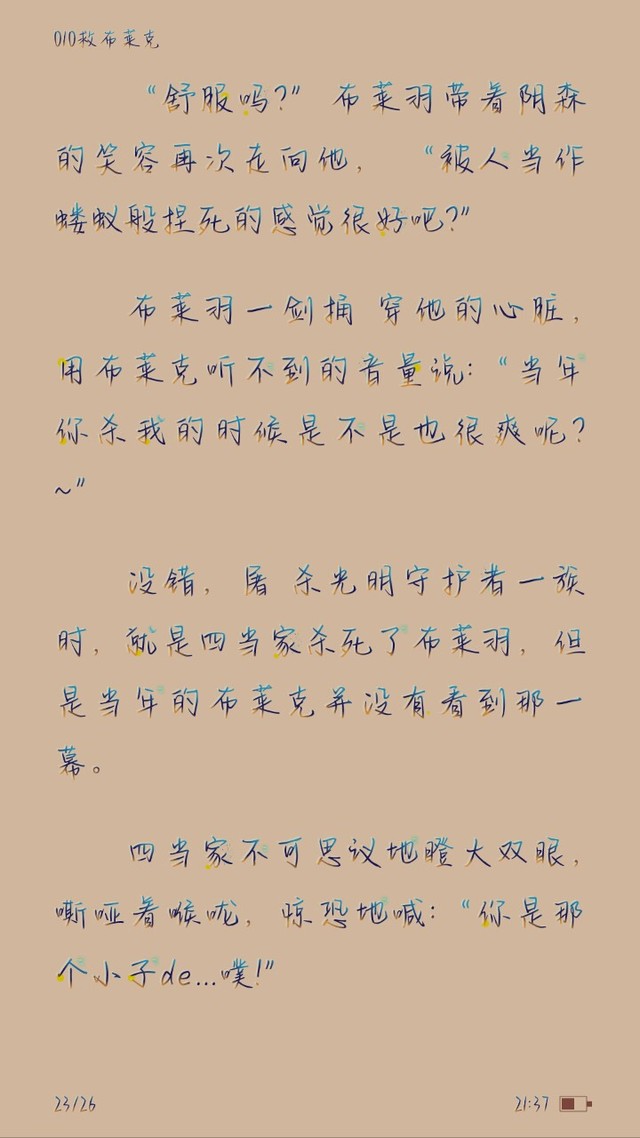 010救布莱克
“舒服吗?” 布莱羽带着阴森
的笑容再次走向他, “被人当作
蝼蚁般捏死的感觉很好吧?”
布莱羽一剑捅 穿他的心脏,
用布莱克听不到的音量说:“当年
你杀我的时候是不是也很爽呢?
~”
没错, 屠 杀光明守护者一族
时, 就是四当家杀死了布莱羽, 但
是当年的布莱克并没有看到那一
幕。
四当家不可思议地瞪大双眼,
嘶哑着喉咙, 惊恐地喊:“你是那
个小子de...噗!”
23/26
21:37